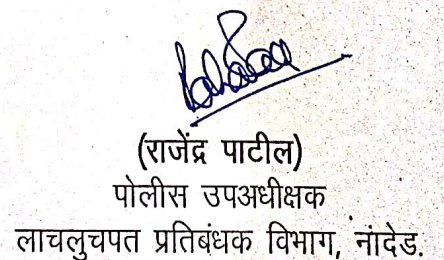 (राजेंद्र पाटील)
पोलीस उपअधीक्षक
लाचलुचपत प्रतिबंधक विभाग, नांदेड.